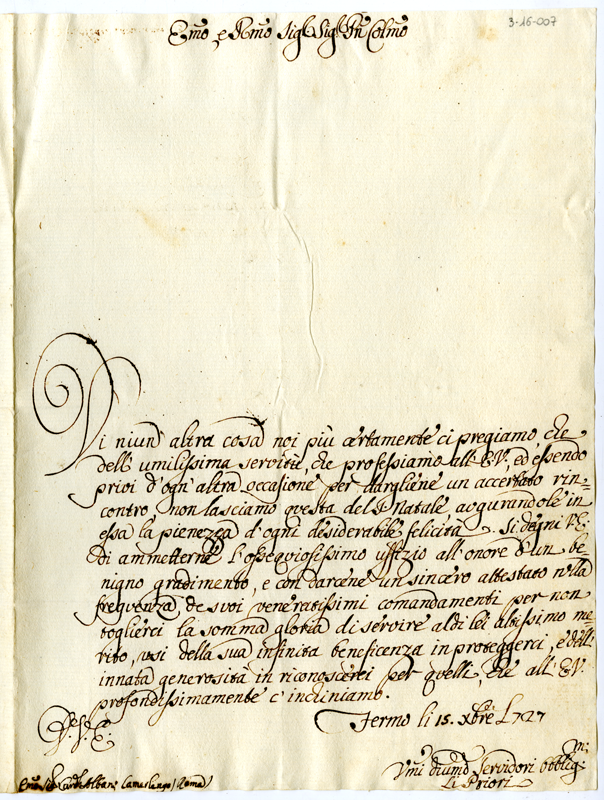 3-16-007
Emo, e Rmo Sigr Sigr Prn Colmo
Di niun altra cosa noi più certamente ci pregiamo, che
dell'umilissima servitù, che professiamo all'E.V., ed essendo
privi d'ogn'altra occasione per dargliene un accertato rin=
contro, non lasciamo questa del S. Natale, augurandole in
essa la pienezza d'ogni desiderabile felicità. Si degni V.E.
di ammetterne l'ossequiosissimo uffizio all'onore d'un be=
nigno gradimento, e con darcene un sincero attestato nella
frequenza de suoi veneratissimi comandamenti per non
toglierci la somma gloria di servire al di lei altissimo me=
rito, usi della sua infinita beneficenza in proteggerci, e dell'
innata generosità in riconoscerci per quelli, che all'E.V.
profondissimamente c'inchiniamo.
Fermo li 15. Xbre 1727
D. V. E.
Vmi divmi Servidori obblig:mi
Li Priori
Emo Sig Card: Albani Camarlengo (Roma)